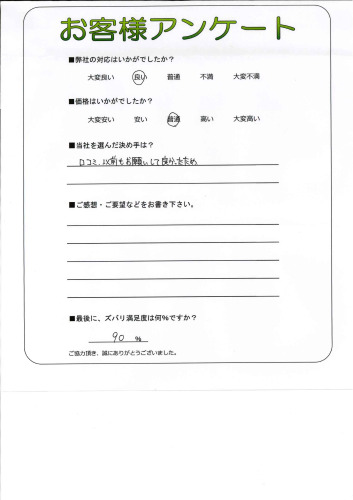 お客様アンケート
■弊社の対応はいかがでしたか？
大変良い 良い 普通 不満 大変不満
■価格はいかがでしたか？
大変安い 安い 普通 高い 大変高い
■当社を選んだ決め手は？
口コミ、以前もお願いして良かったため
■ご感想・ご要望などをお書き下さい。
■最後に、ズバリ満足度は何%ですか？
90 %
ご協力頂き、誠にありがとうございました。